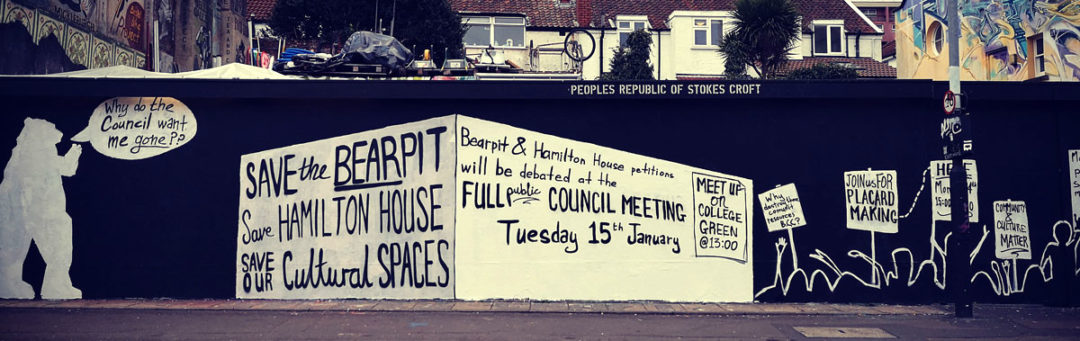 PEOPLES REPUBLIC OF STOKES CROFT
Why do the
Council want
me gone??
SAVE the BEARPIT
Save HAMILTON HOUSE
SAVE OUR Cultural SPACES
Bearpit & Hamilton House petitions
will be debated at the
FULL public COUNCIL MEETING
Tuesday 15th January
MEET UP
on
COLLEGE
GREEN
@13:00
Why
destroy
resources
BCC?
JOIN US FOR
PLACARD
MAKING
HE
Mon
15:00
COMMUNITY
& CULTURE
MATTER